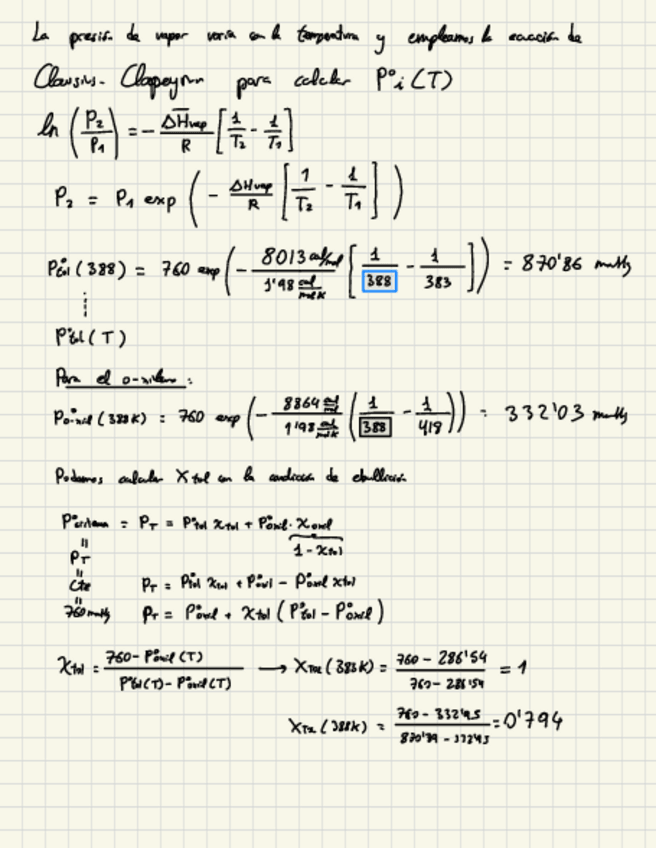 La presión de vapor varía con la temperatura y empleamos la ecuación de
Clausius-Clapeyron para calcular P°i(T)
ln (P2/P1) = - ΔHvap/R [1/T2 - 1/T1]
P2 = P1 exp (- ΔHvap/R [1/T2 - 1/T1])
P°tol (388) = 760 exp (- 8013 cal/mol / 1'98 cal/molK [1/388 - 1/383]) = 870'86 mmHg
P°tol (T)
Para el o-xileno:
P°o-xil (388K) = 760 exp (- 8864 cal/mol / 1'98 cal/molK (1/388 - 1/418)) = 332'03 mmHg
Podemos calcular Xtol con la condición de ebullición
= PT = P°tol xtol + P°oxil · xoxil
1 - xtol
PT
cte PT = P°tol xtol + P°oxil - P°oxil xtol
760 mmHg PT = P°oxil + xtol (P°tol - P°oxil)
Xtol = 760 - P°oxil (T) / P°tol (T) - P°oxil (T) → XTol (383K) = 760 - 286'54 / 760 - 286'54 = 1
XTol (388K) = = 0'794